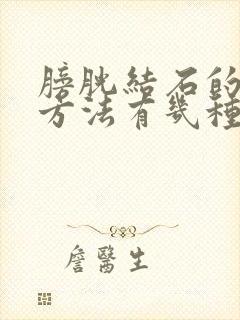 膀胱結石的
方法有幾種
詹醫生